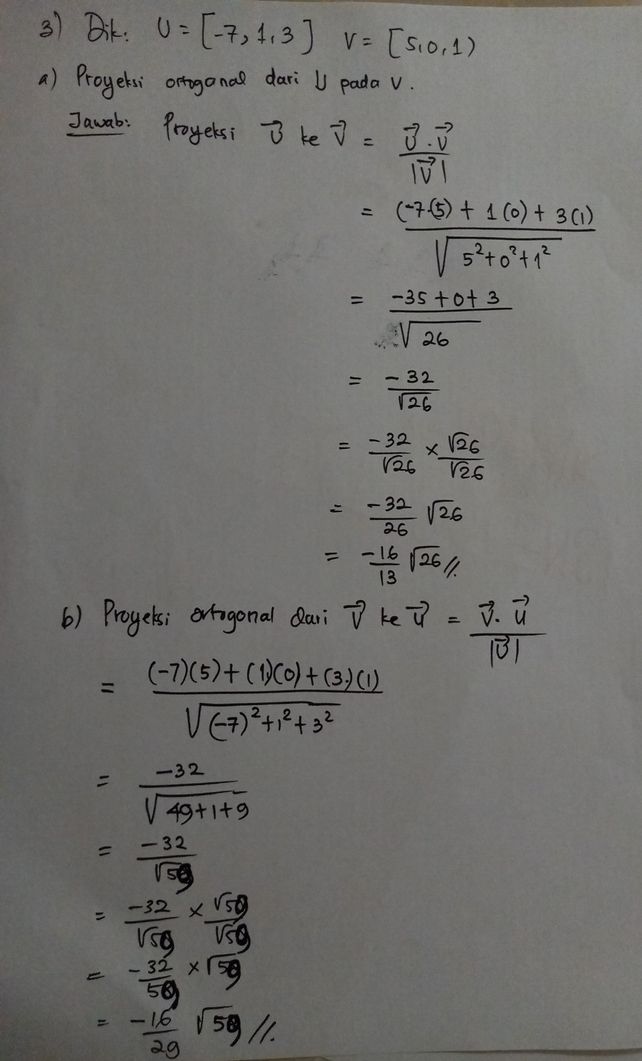 3) Dik: U = [-7, 1, 3] V = [5,0,1)
a) Proyeksi ortogonal dari U pada V.
Jawab: Proyeksi U⃗ ke V⃗ = U⃗ . V⃗ / |V⃗|
= (-7.(5) + 1(0) + 3(1) / √5²+0²+1²
= -35 + 0 + 3 / √26
= -32 / √26
= -32/√26 × √26/√26
= -32/26 √26
= -16/13 √26 //.
b) Proyeksi ortogonal dari V⃗ ke U⃗ = V⃗. U⃗ / |U⃗|
= (-7)(5) + (1)(0) + (3)(1) / √(-7)²+1²+3²
= -32 / √49+1+9
= -32 / √59
= -32/√59 × √59/√59
= -32/59 × √59
= -16/29 √59 //.